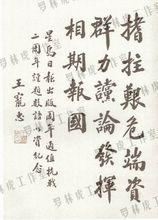 搘拄艱危端資
群力讜論發揮
相期報國
星島日報出版周年適值抗戰
二周年謹題數語以資紀念
王寵惠
罗林虎工作室